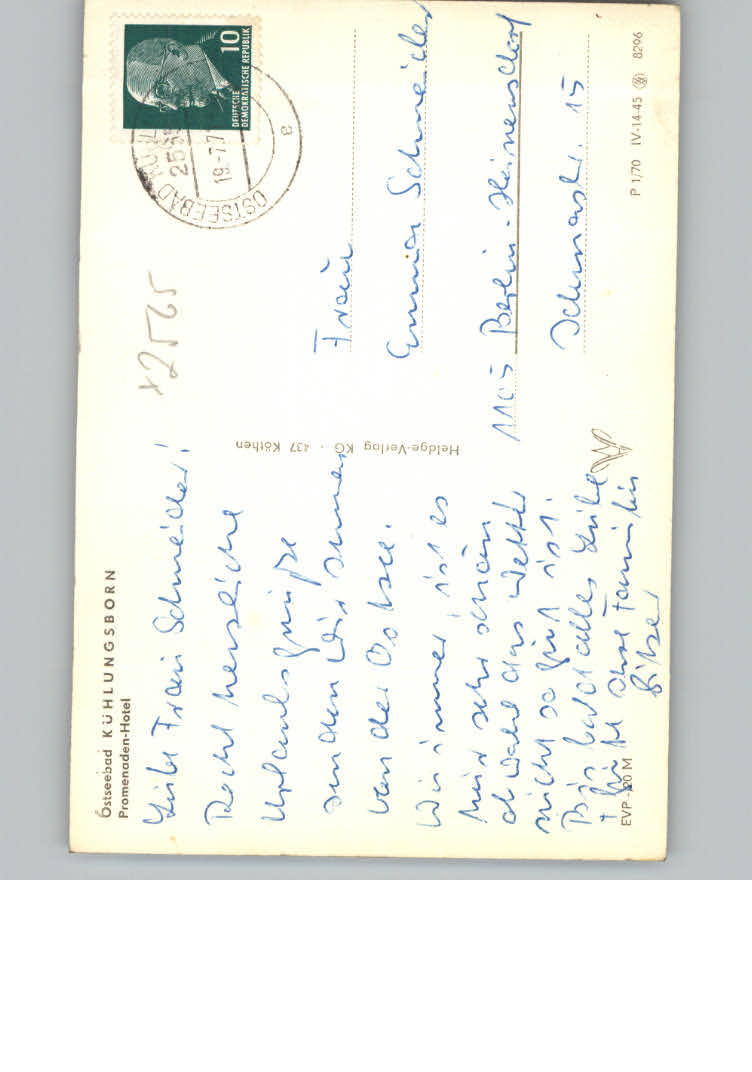 Ostseebad KÜHLUNGSBORN
Promenaden-Hotel
Liebe Frau Schneider!
Recht herzliche
Urlaubsgrüße
senden wir Ihnen
von der Ostsee.
Wie immer, ist es
hier sehr schön
obwohl das Wetter
nicht so gut ist.
Bis bald alles Liebe
+ Gute Ihre Familie
EVP -,20 M
Heldge-Verlag KG · 437 Köthen
x2565
DEUTSCHE
DEMOKRATISCHE REPUBLIK
10
OSTSEEBAD
19.-7.7
e
Frau
Emma Schneider
1105 Berlin-Heinersdorf
15
P 1/70 IV-14-45 8296